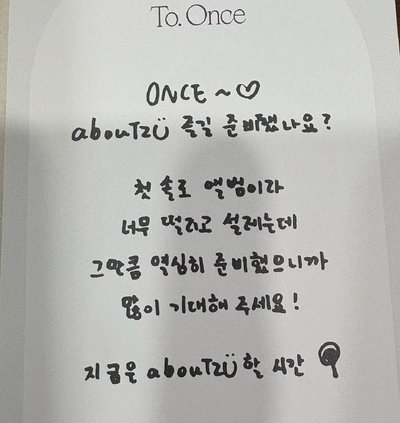 To. Once
ONCE ~ ♡
abouTZU 즐길 준비했나요?
첫 솔로 앨범이라
너무 떨리고 설레는데
그만큼 열심히 준비했으니까
많이 기대해 주세요!
지금은 abouTZU 할 시간